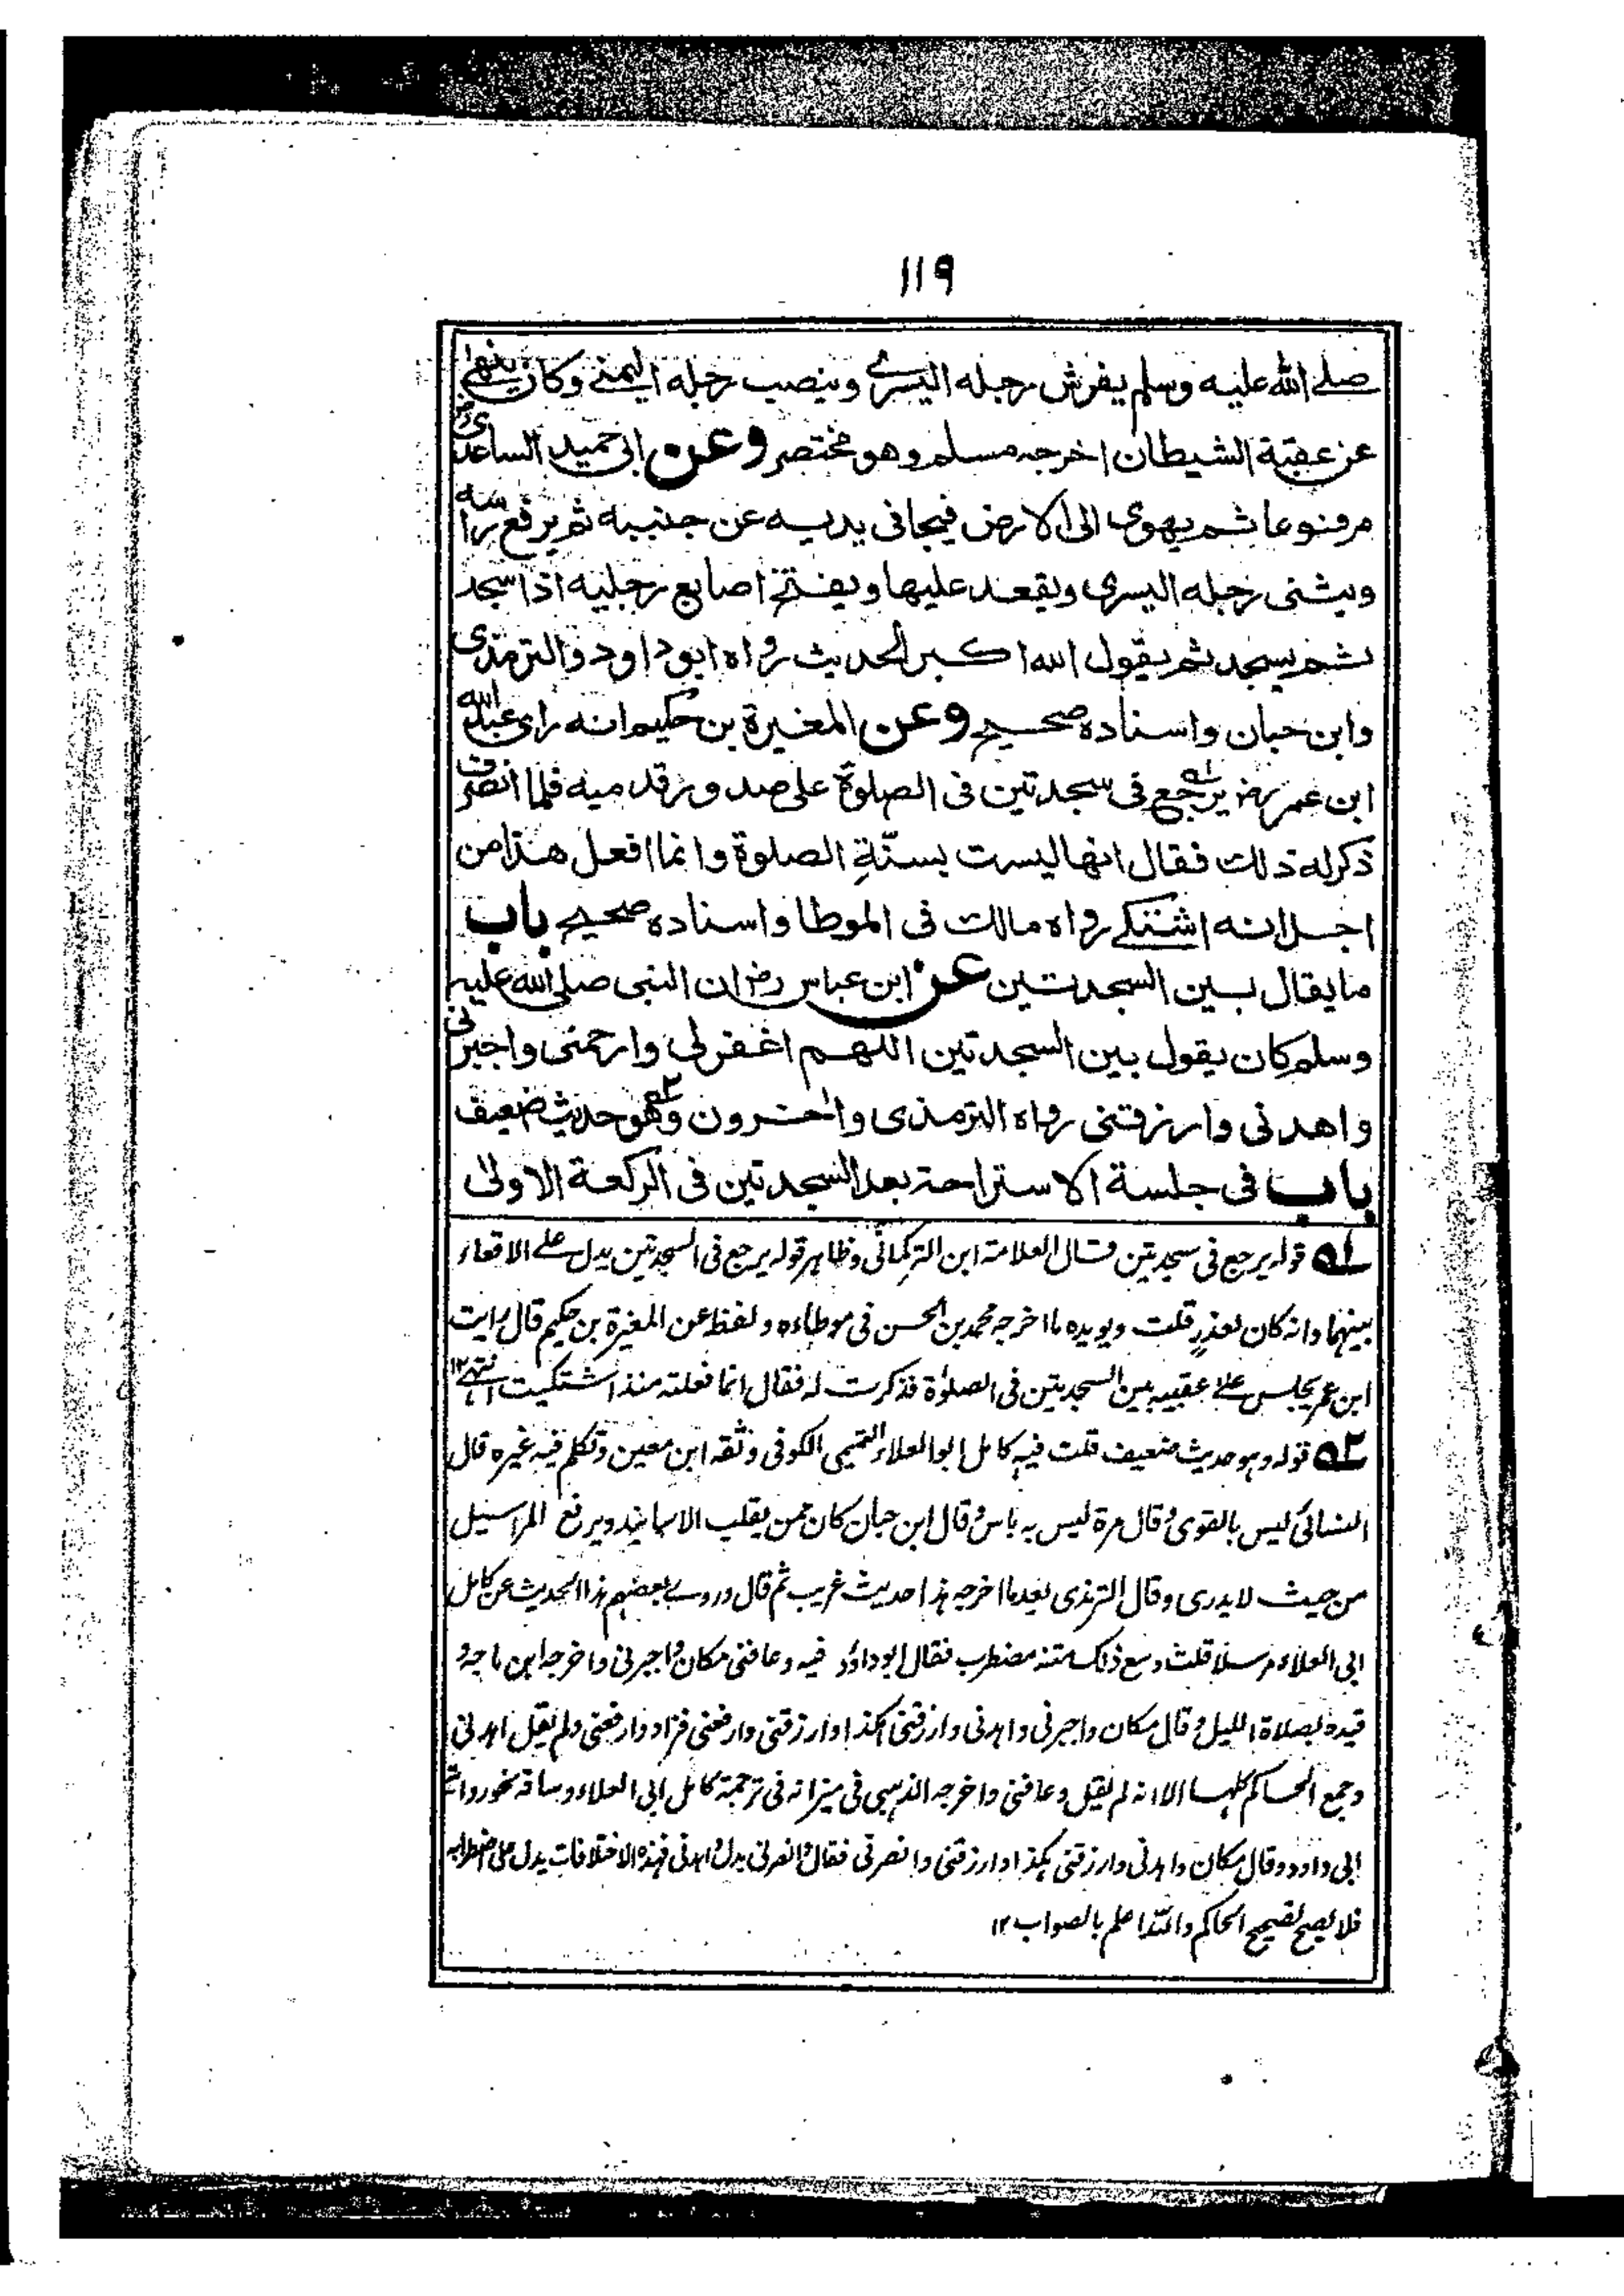 ١١٩
صلى الله عليه وسلم يفرش رجله اليسرى وينصب رجله اليمنى وكان ينهى
عن عقبة الشيطان اخرجه مسلم وهو مختصر وعن ابى حميد الساعدى رض
مرفوعا ثم يهوى الى الارض فيجافى يديه عن جنبيه ثم يرفع راسه
ويثنى رجله اليسرى ويقعد عليها ويفتخ اصابع رجليه اذا سجد
ثم يسجد ثم يقول الله اكبر الحديث رواه ابو داود والترمذى
وابن حبان واسناده صحيح وعن المغيرة بن حكيم انه راى عبد الله
ابن عمر رض يرجع ١ه فى سجدتين فى الصلوة على صدور قدميه فلما انصرف
ذكر له ذلك فقال انها ليست بسنّةِ الصلوة وانما افعل هذا من
اجل انه اشتكى رواه مالك فى الموطا واسناده صحيح باب
ما يقال بين السجدتين عن ابن عباس رض ان النبى صلى الله عليه
وسلم كان يقول بين السجدتين اللهم اغفرلى وارحمنى واجبرنى
واهدنى وارزقنى رواه الترمذى واخرون ٢ه وهو حديث ضعيف
باب فى جلسة الاستراحة بعد السجدتين فى الركعة الاولى
١ه قوله يرجع فى سجدتين قال العلامة ابن التركمانى وظاهر قوله يرجع فى السجدتين يدل على الاقعاء
بينهما وانه كان لعذرٍ قلت ويويده ما اخرجه محمد بن الحسن فى موطاءه ولفظه عن المغيرة بن حكيم قال رايت
ابن عمر يجلس على عقبيه بين السجدتين فى الصلوٰة فذكرت له فقال انما فعلته منذ اشتكيت انتهى ١٢
٢ه قوله وهو حديث ضعيف قلت فيه كامل ابو العلاء التميمى الكوفى وثقه ابن معين وتكلم فيه غيره قال
النسائى ليس بالقوى وقال مرة ليس به باس وقال ابن حبان كان ممن يقلب الاسانيد ويرفع المراسيل
من حيث لا يدرى وقال الترمذى بعد ما اخرجه هذا حديث غريب ثم قال وروى بعضهم هذا الحديث عن كامل
ابى العلاء مرسلا قلت ومع ذلك متنه مضطرب فقال ابو داؤد فيه وعافنى مكان واجبرنى واخرجه ابن ماجه و
قيده بصلاة الليل وقال مكان واجبرنى واهدنى وارزقنى هكذا وارزقنى وارفعنى فزاد وارفعنى ولم يقل اهدنى
وجمع الحاكم كلها الا انه لم يقل وعافنى واخرجه الذهبى فى ميزانه فى ترجمة كامل ابى العلاء وساقه نحو رواية
ابى داود وقال مكان واهدنى وارزقنى هكذا وارزقنى وانصرنى فقال وانصرنى بدل واهدنى فهذه الاختلافات يدل على اضطرابه
فلا يصح تصحيح الحاكم والله اعلم بالصواب ١٢